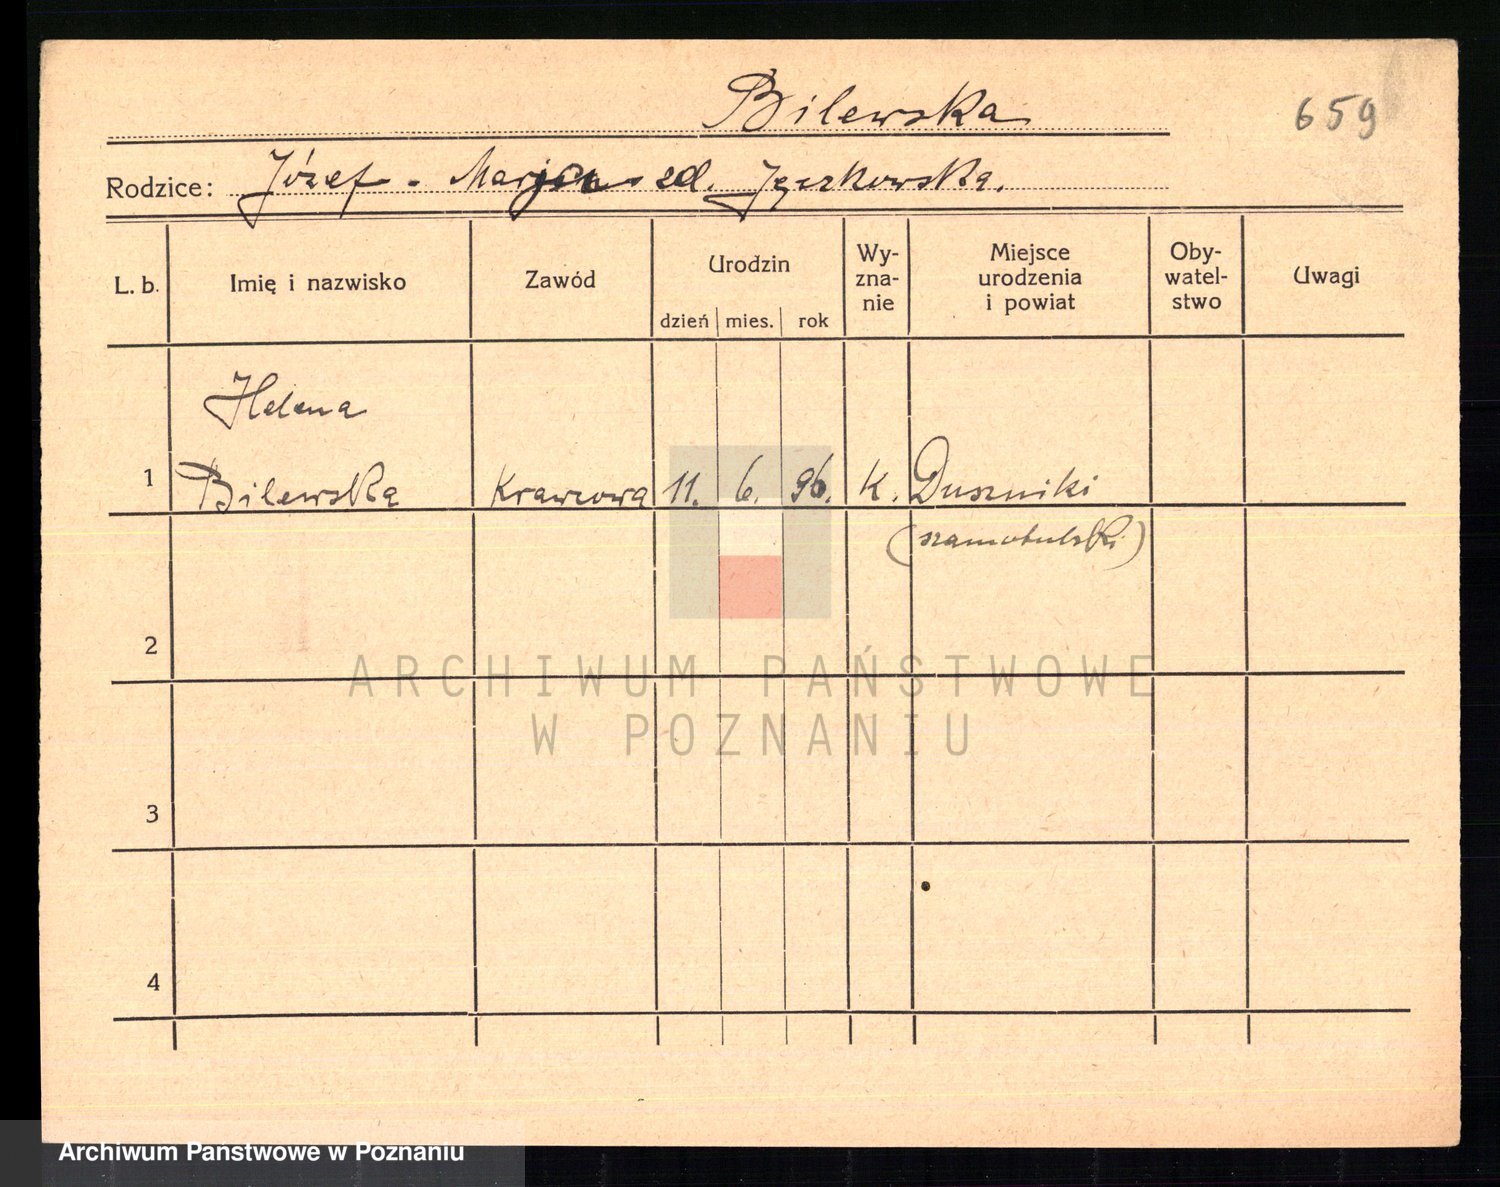 Bilewska
659
Rodzice: Józef - Marja zd. Jęczkowska.
L. b. Imię i nazwisko Zawód Urodzin dzień mies. rok Wyznanie Miejsce urodzenia i powiat Obywatelstwo Uwagi
Helena
1 Bilewska Krawcowa 11. 6. 96. K. Duszniki
(szamotulski)
2
ARCHIWUM PAŃSTWOWE
W POZNANIU
3
4
Archiwum Państwowe w Poznaniu